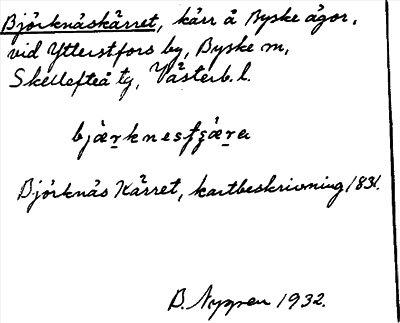 Björknäskärret, kärr å Byske ägor,
vid Ytterstfors by, Byske sn,
Skellefteå tg, Västerb. l.
bjæ̣rknesʃɕæ̣rɐ
Björknäs Kärret, kartbeskrivning 1831.
B. Nygren 1932.